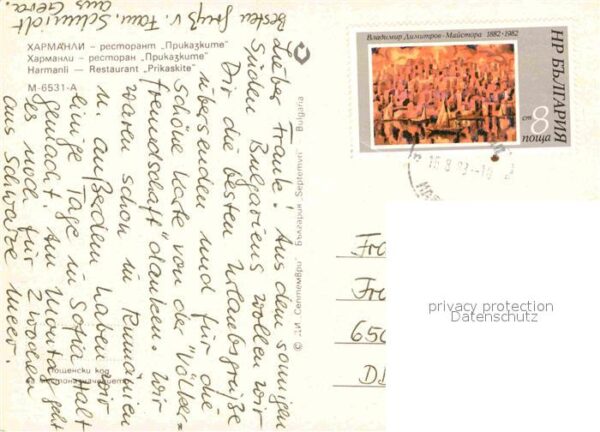 Besten Gruß v. Fam. Schmidt
aus Gera.
ХАРМАНЛИ – ресторант „Приказките“
Харманли — ресторан „Приказките“
Harmanli — Restaurant "Prikaskite"
М-6531-А
Liebe Frau! Aus dem sonnigen
Süden Bulgariens wollen wir
Dir die besten Urlaubsgrüße
übersenden und für die
schöne Karte von der "Völker-
freundschaft" danken. Wir
waren schon in Rumänien
u. außerdem haben wir
einige Tage in Sofia Halt
gemacht. Am Montag geht
es noch für 2 Wochen
ans Schwarze Meer.
Пощенски код
на местоназначението
© ДИ „Септември“ България "Septemvri" Bulgaria
Владимир Димитров - Майстора 1882-1982
НР БЪЛГАРИЯ
ст 8
поща
Fr
Fr
650
DD
privacy protection
Datenschutz